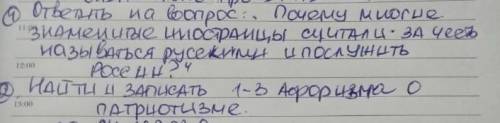 ① Ответить на вопрос: „Почему многие
знаменитые иностранцы считали за честь
называться русскими и послужить
России?"
12:00
② Найти и записать 1-3 афоризма о
13:00
патриотизме.